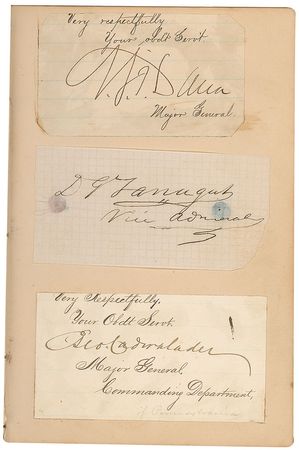 Very respectfully
Your obdt Servt.
N. J. T. Dana
Major General.
D G Farragut
Vice Admiral
Very Respectfully.
Your Obdt Servt.
Geo Cadwalader
Major General
Commanding Department,
of Pennsylvania